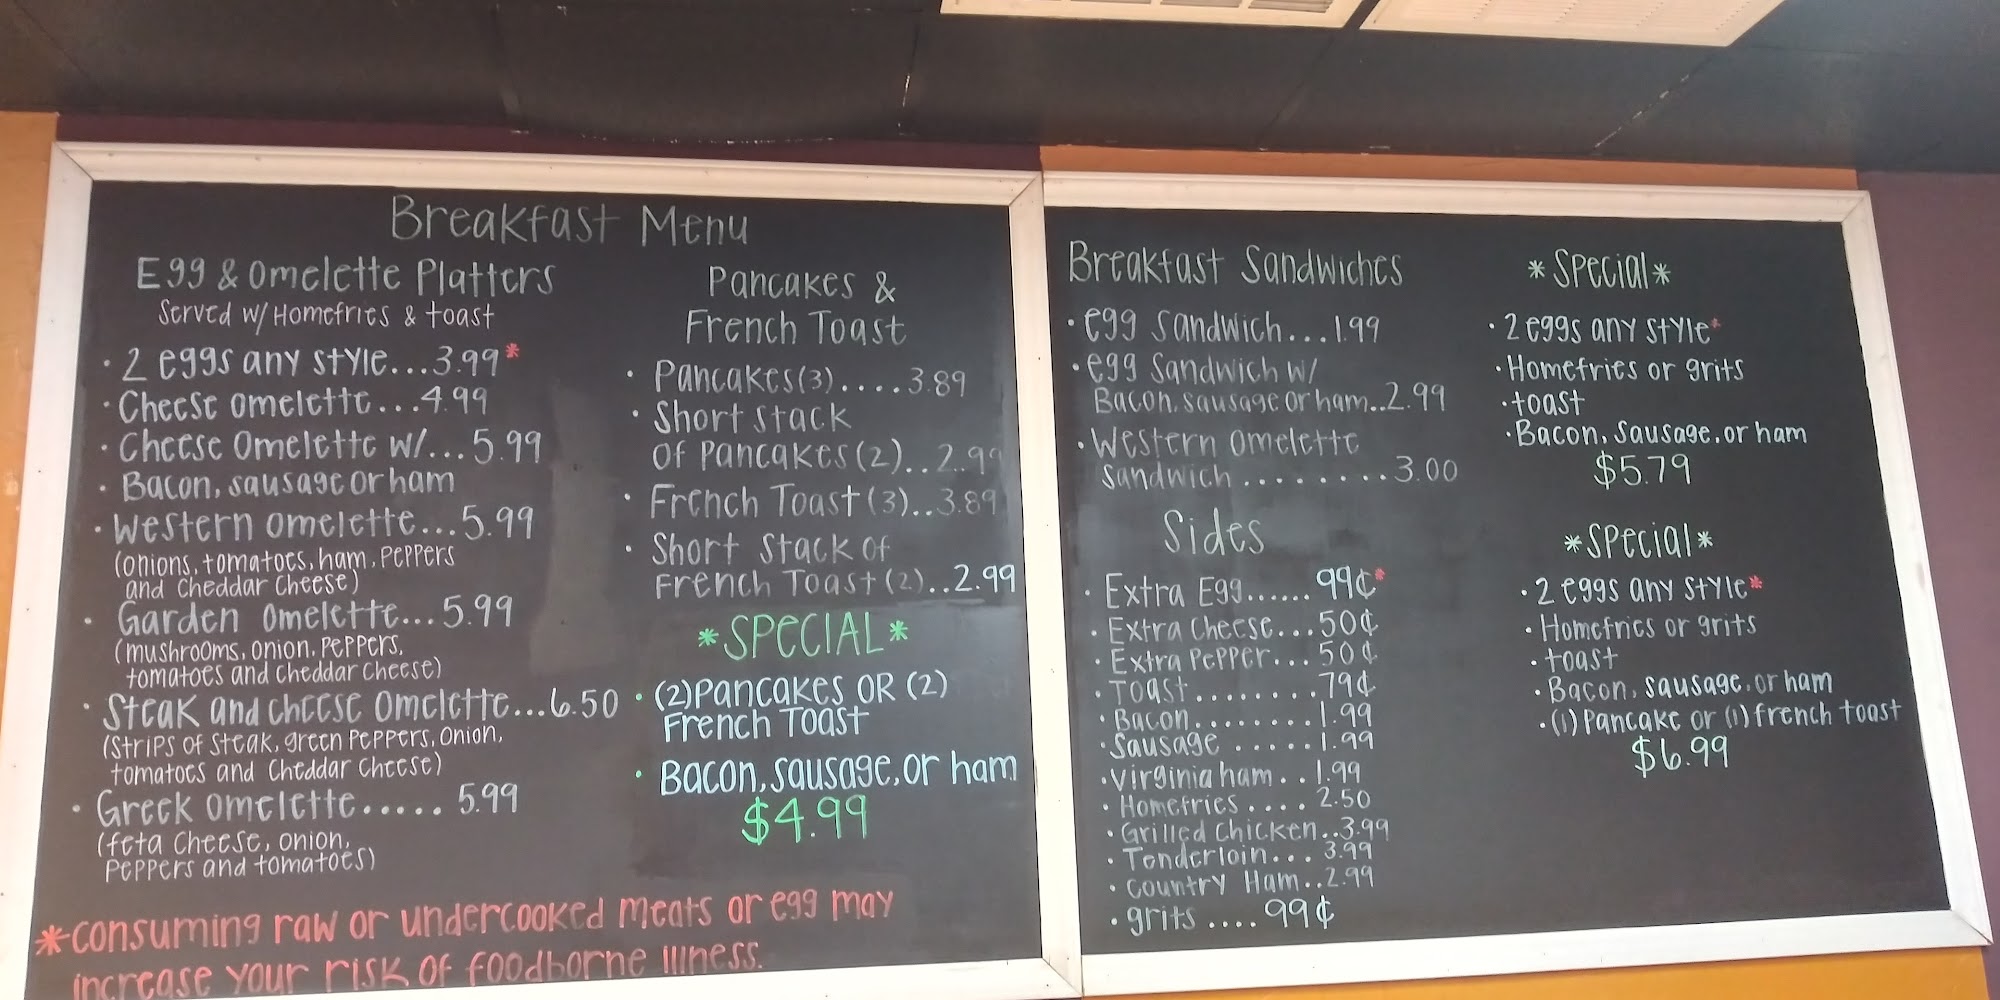 Breakfast Menu
Egg & Omelette Platters
Served w/ Homefries & toast
• 2 eggs any style...3.99*
• Cheese omelette...4.99
• Cheese Omelette w/...5.99
• Bacon, sausage or ham
• Western omelette...5.99
(onions, tomatoes, ham, Peppers
and Cheddar Cheese)
• Garden Omelette...5.99
(mushrooms, onion, Peppers,
tomatoes and Cheddar Cheese)
• Steak and cheese Omelette...6.50
(Strips of Steak, green Peppers, Onion,
tomatoes and Cheddar Cheese)
• Greek omelette.....5.99
(feta Cheese, onion,
Peppers and tomatoes)
Pancakes &
French Toast
• Pancakes (3)....3.89
• Short stack
of Pancakes (2)..2.99
• French Toast (3)..3.89
• Short Stack of
French Toast (2)..2.99
*SPECIAL*
• (2) Pancakes OR (2)
French Toast
• Bacon, sausage, or ham
$4.99
*consuming raw or undercooked meats or egg may
increase your risk of foodborne illness.
Breakfast Sandwiches
• egg sandwich...1.99
• egg Sandwich w/
Bacon, sausage or ham..2.99
• Western Omelette
Sandwich.........3.00
Sides
• Extra Egg......99¢*
• Extra Cheese...50¢
• Extra Pepper...50¢
• Toast........79¢
• Bacon........1.99
• Sausage.....1.99
• Virginia ham..1.99
• Homefries....2.50
• Grilled Chicken..3.99
• Tenderloin...3.99
• Country Ham..2.99
• grits....99¢
*Special*
• 2 eggs any style*
• Homefries or grits
• toast
• Bacon, Sausage, or ham
$5.79
*Special*
• 2 eggs any style*
• Homefries or grits
• toast
• Bacon, sausage, or ham
• (1) Pancake or (1) french toast
$6.99